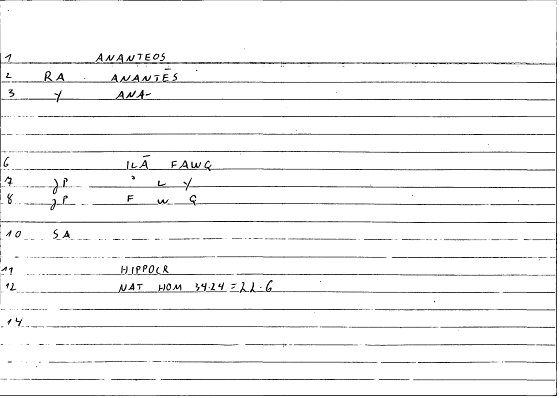 1 ANANTEOS
2 RA ANANTĒS
3 Y ANA-
6 ILĀ FAWQ
7 JP ʾ L Y
8 JP F W Q
10 SA
11 HIPPOCR
12 NAT HOM 34.24 = 22.6
14